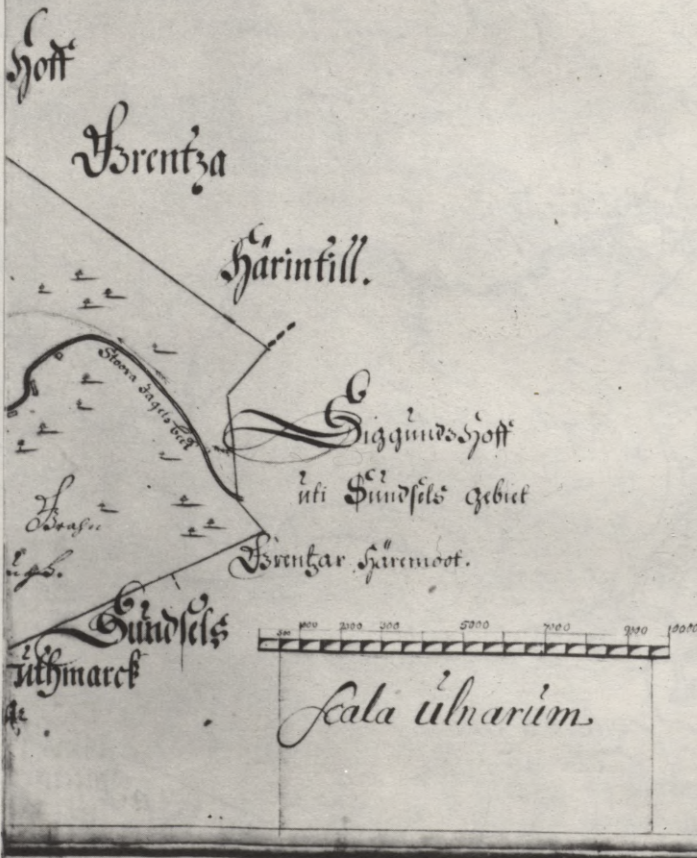 Hoff
Brentza
Härintill.
Stoora
Siggunds Hoff
uti Sundsels gebiet
Brentzar Häremoot.
Sundsels
Uthmarck
500 1000 2000 300 5000 7000 9000 10000
Scala Ulnarum